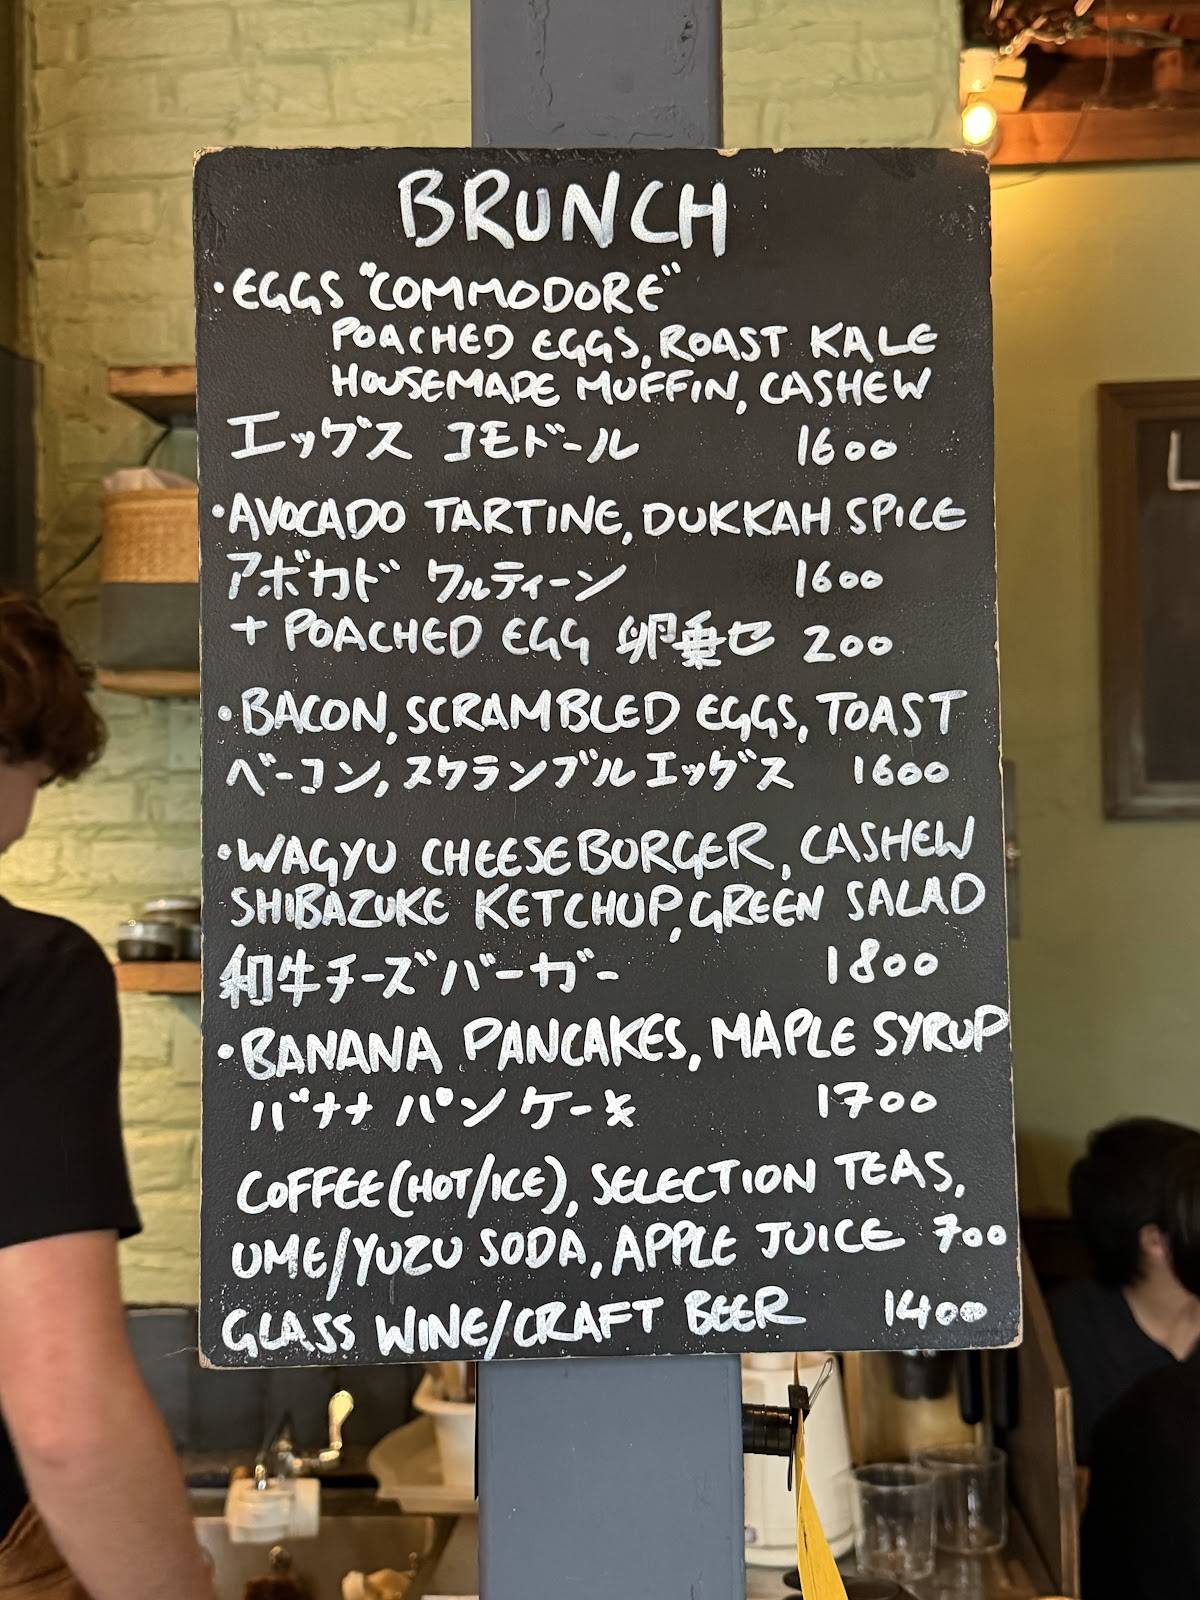 BRUNCH
・EGGS "COMMODORE"
POACHED EGGS, ROAST KALE
HOUSEMADE MUFFIN, CASHEW
エッグス コモドール 1600
・AVOCADO TARTINE, DUKKAH SPICE
アボカド タルティーン 1600
+ POACHED EGG 卵乗せ 200
・BACON, SCRAMBLED EGGS, TOAST
ベーコン, スクランブルエッグス 1600
・WAGYU CHEESEBORGER, CASHEW
SHIBAZUKE KETCHUP, GREEN SALAD
和牛チーズバーガー 1800
・BANANA PANCAKES, MAPLE SYRUP
バナナ パンケーキ 1700
COFFEE (HOT/ICE), SELECTION TEAS,
UME/YUZU SODA, APPLE JUICE 700
GLASS WINE/CRAFT BEER 1400
L